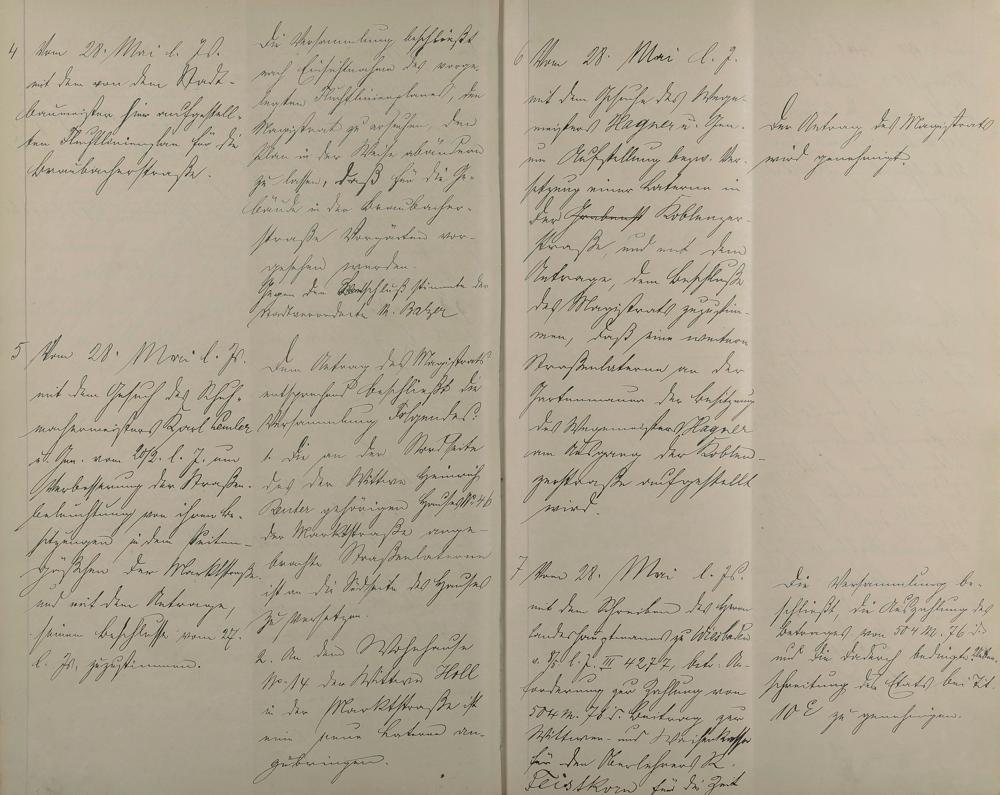 4
Vom 28. Mai l. Js.
mit dem von dem Stadt-
baumeister hier aufgestell-
ten Fluchtlinienplan für die
Braubacherstraße.
Die Versammlung beschließt
nach Einsichtnahme des vorge-
legten Fluchtlinienplanes, den
Magistrat zu ersuchen, den
Plan in der Weise abändern
zu lassen, daß für die Ge-
bäude in der Braubacher-
straße Vorgärten vor-
gesehen werden.
Gegen den Beschluß stimmte der
Stadtverordnete A. Balzer
5
Vom 28. Mai l. Js.
mit dem Gesuch des Schuh-
machermeisters Karl
u. Gen. vom l. J. um
Verbesserung der Straßen-
beleuchtung von ihren Be-
sitzungen in dem Seiten-
gäßchen der Marktstraße
und mit dem Antrage,
seinem Beschlusse vom 27.
l. Js. zuzustimmen.
Dem Antrag des Magistrats
entsprechend beschließt die
Versammlung Folgendes:
1. Die an der Nordseite
des der Wittwe Heinrich
gehörigen Hauses No 46
der Marktstraße ange-
brachte Straßenlaterne
ist an die Südseite des Hauses
zu versetzen.
2. An dem Wohnhause
No. 14 der Wittwe Holl
in der Marktstraße ist
eine neue Laterne an-
zubringen.
6
Vom 28. Mai l. J.
mit dem Gesuche des Wege-
meisters Hagner u. Gen.
um Aufstellung bezw. Ver-
setzung einer Laterne in
der Koblenzer-
straße, und mit dem
Antrage, dem Beschlusse
des Magistrats zuzustim-
men, daß eine weitere
Straßenlaterne an der
Gartenmauer der Besitzung
des Wegemeisters Hagner
am Ausgang der Koblen-
zerstraße aufgestellt
wird.
Der Antrag des Magistrats
wird genehmigt.
7
Vom 28. Mai l. Js.
mit dem Schreiben des Herrn
Landeshauptmanns zu Wiesbaden
l. J. III 4277, betr. An-
forderung zur Zahlung von
504 M. 76 d. Beitrag zur
Wittwen- und Waisenkasse
für den Oberlehrer
Feistkorn für die Zeit
Die Versammlung be-
schließt, die Auszahlung des
Betrages von 504 M. 76 d.
und die dadurch bedingte Ueber-
schreitung des Etats bei Tit.
10 E zu genehmigen.